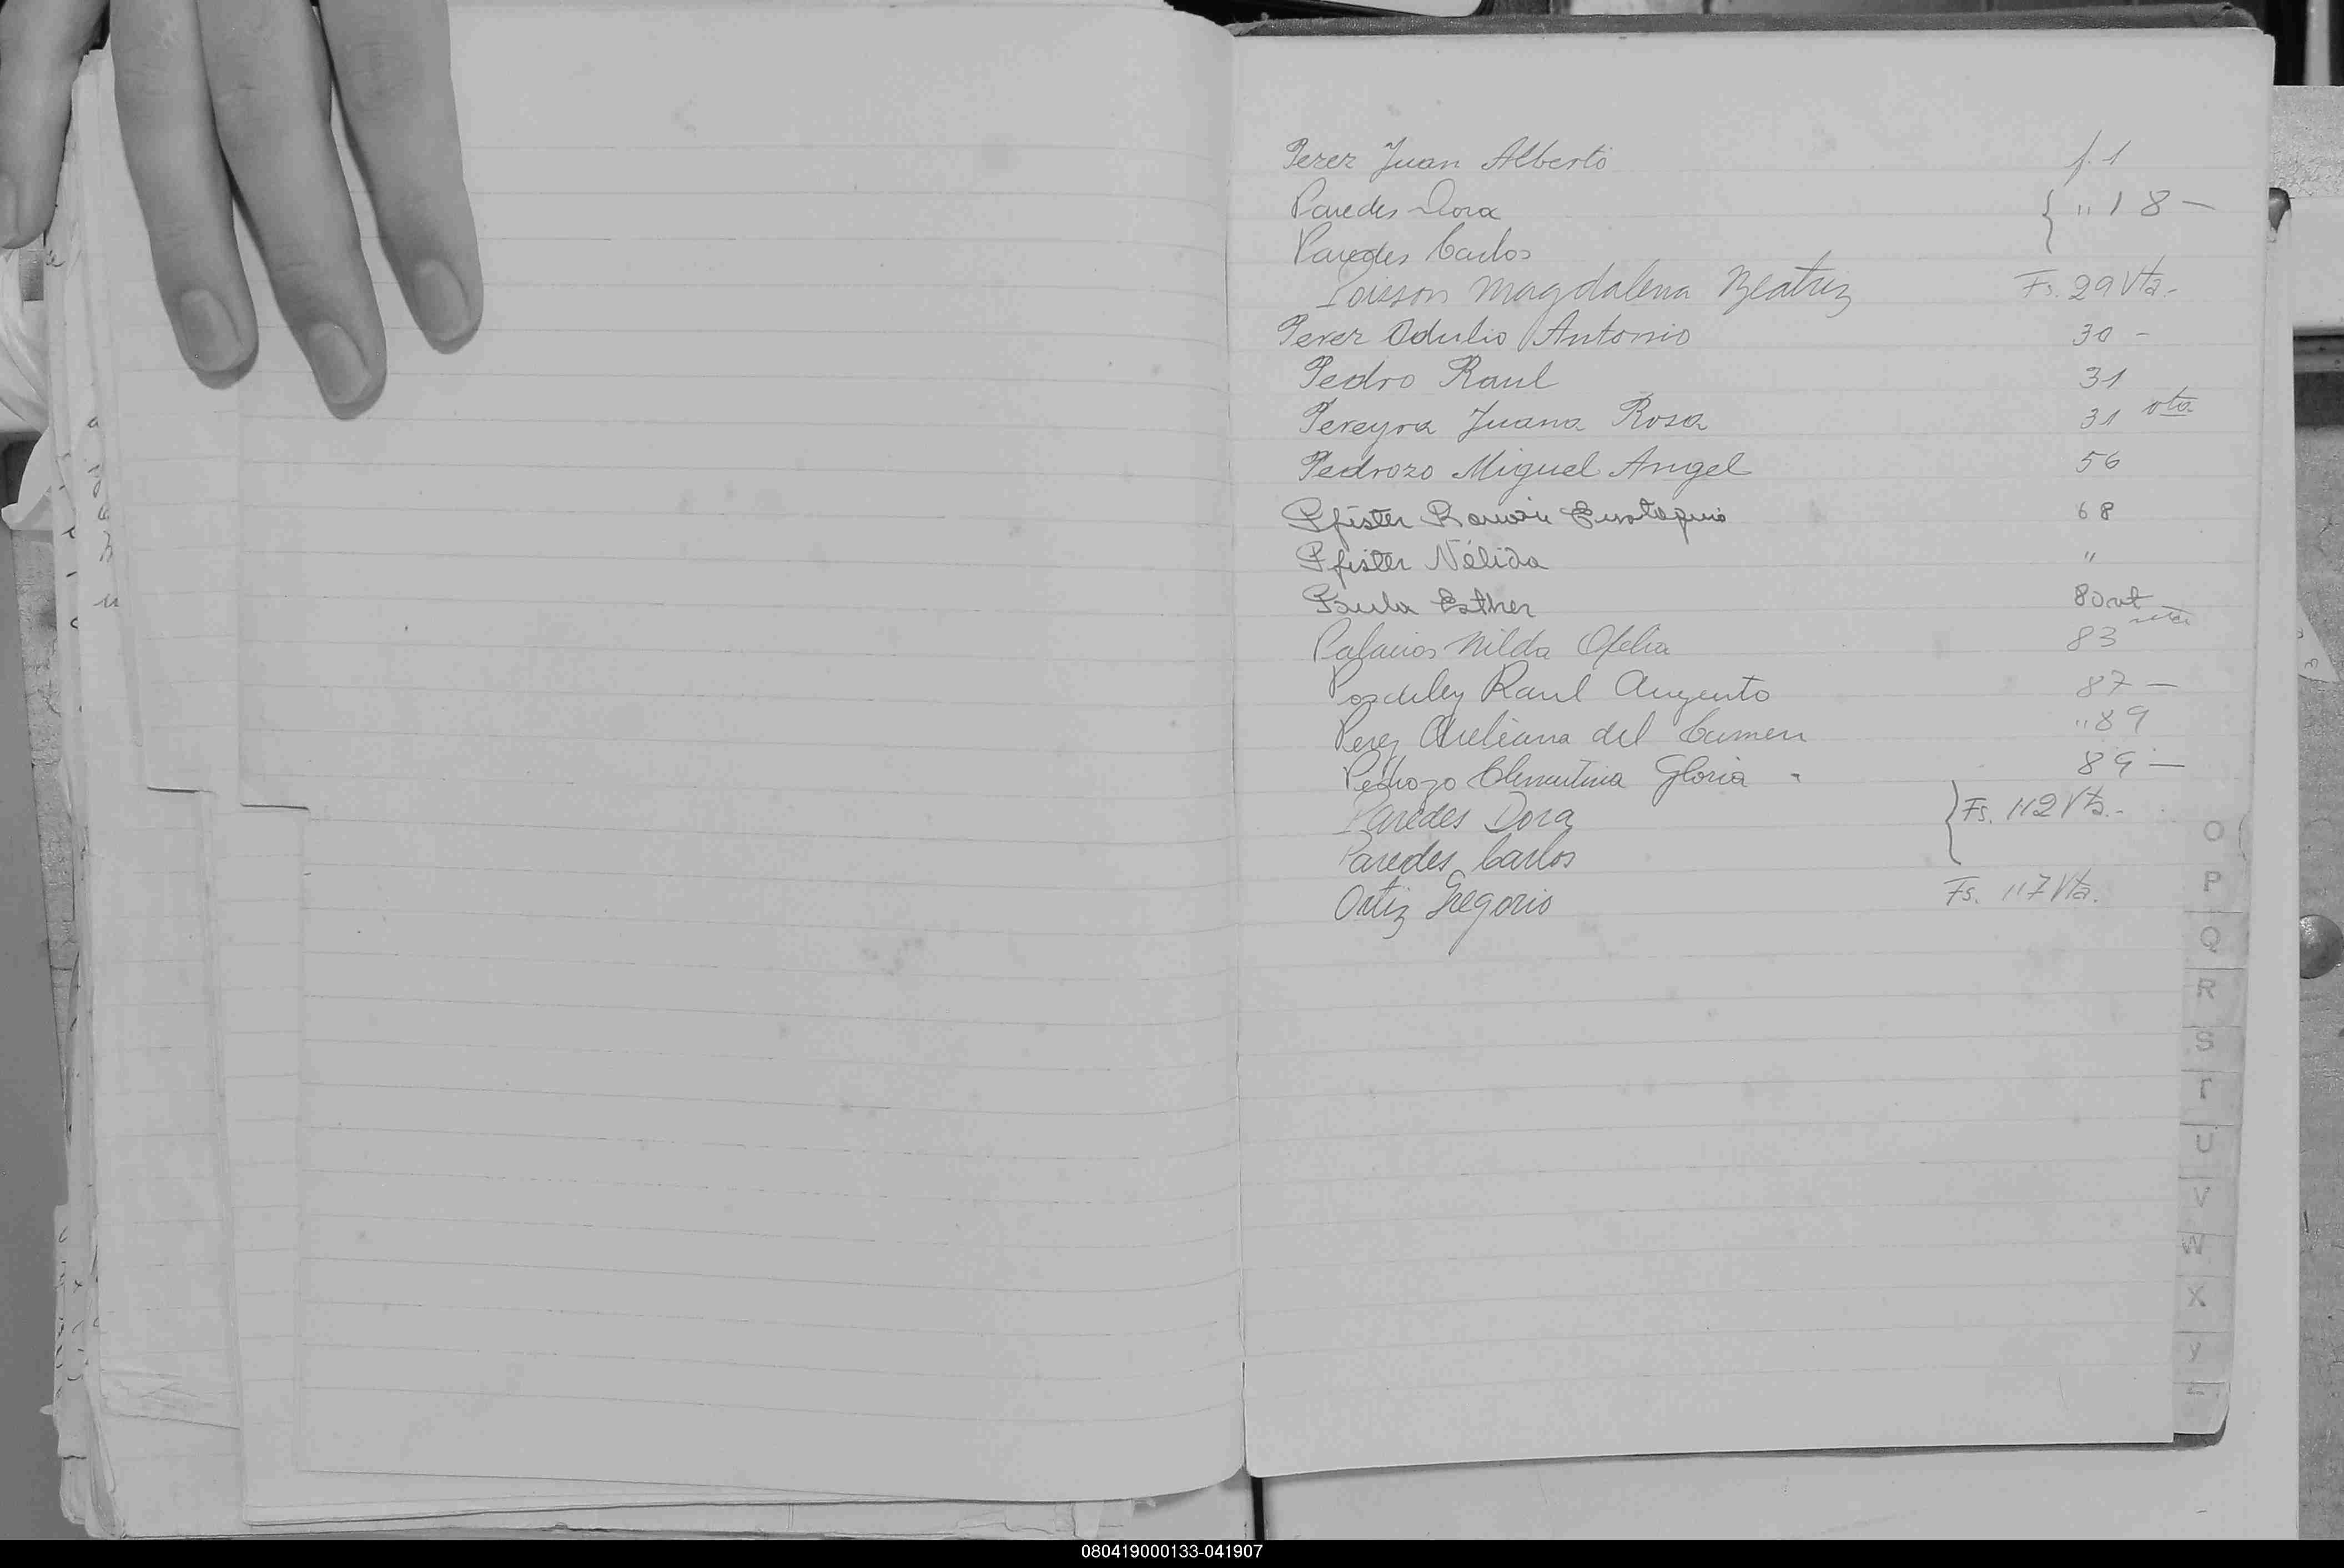 Perez Juan Alberto f. 1
Paredes Dora { " 18 -
Paredes Carlos
Poisson Magdalena Beatriz Fs. 29 Vta.-
Perez Odulio Antonio 30 -
Pedro Raul 31
Pereyra Juana Rosa 31 vta
Pedrozo Miguel Angel 56
Pfister Ramón Eustaquio 68
Pfister Nélida "
Paula Esther 80 vt
Palacios Nilda Ofelia 83 vta
Raul 87 -
Perez del Carmen " 89
Pedrozo Clementina Gloria - 89 -
Paredes Dora } Fs. 112 Vta.-
Paredes Carlos
Ortiz Gregorio Fs. 117 Vta.
O
P
Q
R
S
T
U
V
W
X
Y
080419000133-041907